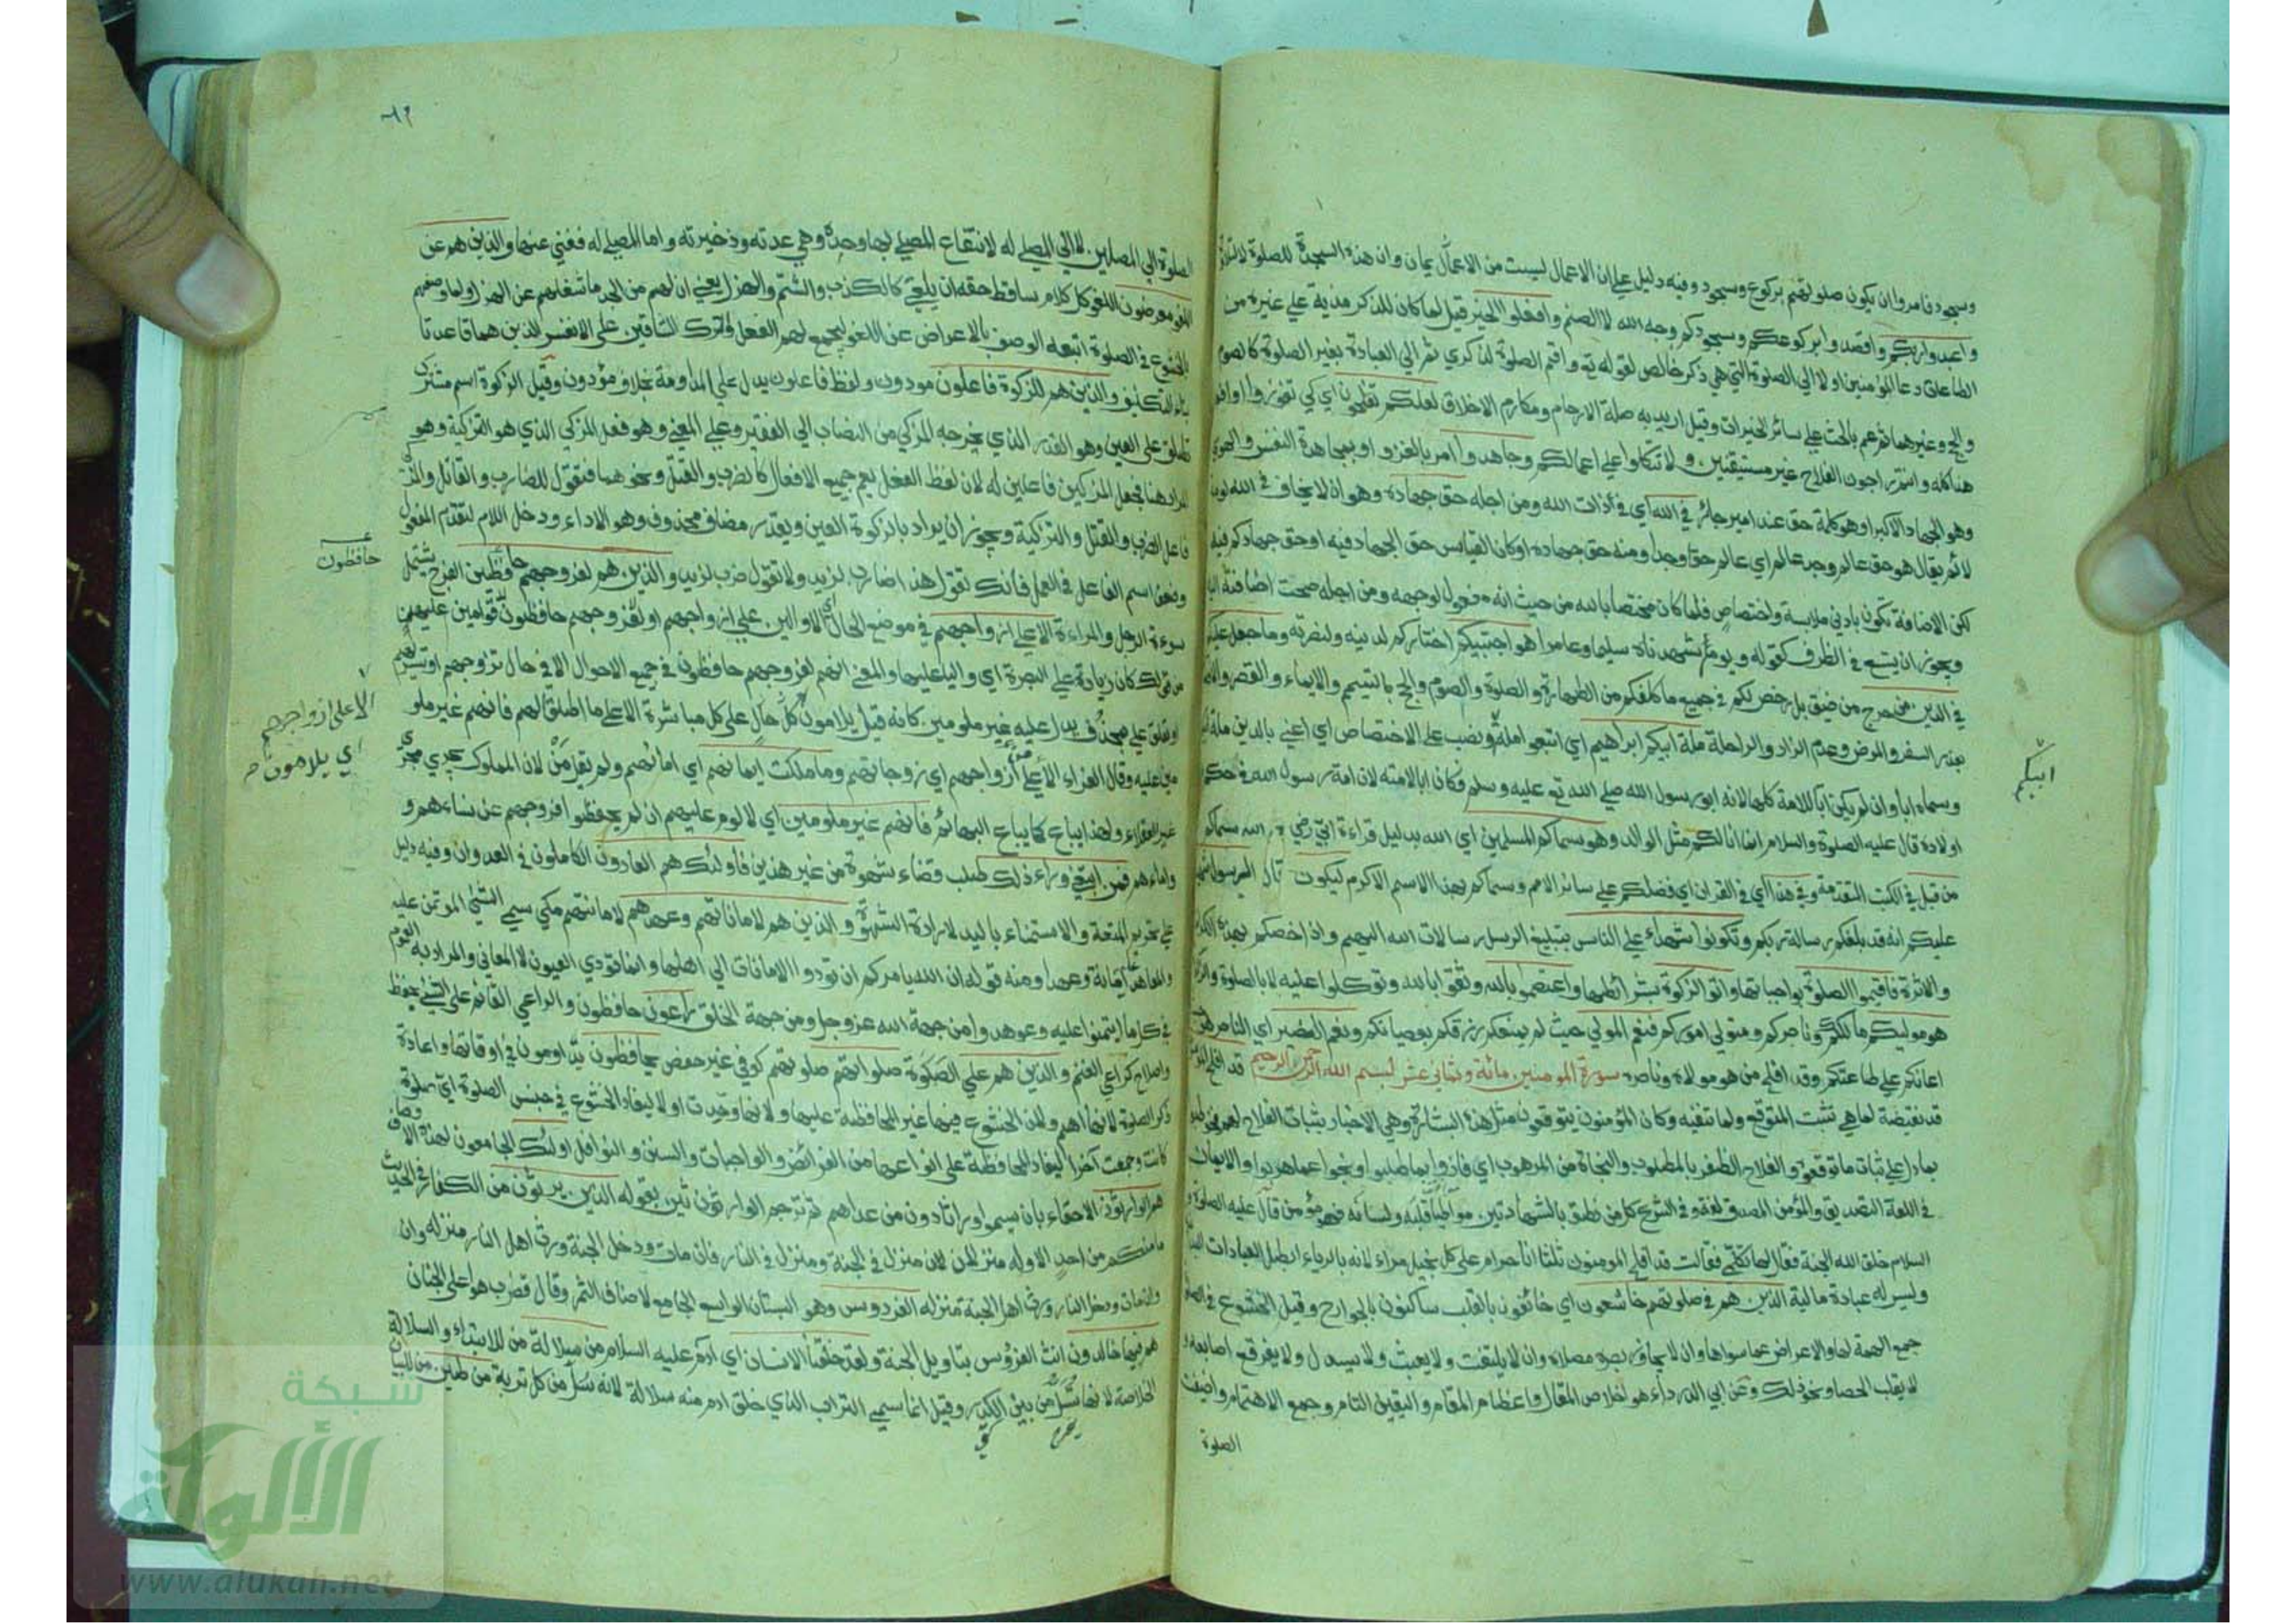 وسجود فامروا ان يكون صلوتهم بركوع وسجود وفيه دليل على ان الاعمال ليست من الايمان وان هذه السجدة للصلوة لا للتلاوة
واعبدوا ربكم واقصدوا بركوعكم وسجودكم وجه الله لا الصنم وافعلوا الخير قيل لما كان للذكر مزية على غيره من
الطاعات دعا المؤمنين اولا الى الصلوة التي هي ذكر خالص لقوله تع واقم الصلوة لذكري ثم الى العبادة بغير الصلوة كالصوم
والحج وغيرهما ثم عم بالحث على سائر الخيرات وقيل اريد به صلة الارحام ومكارم الاخلاق لعلكم تفلحون اي كي تفوزوا او افعلوا
هذا كله وانتم راجون الفلاح غير مستيقنين ولا تتكلوا على اعمالكم وجاهدوا امر بالغزو او بمجاهدة النفس والهوى
وهو الجهاد الاكبر او هو كلمة حق عند امير جائر في الله اي في ذات الله ومن اجله حق جهاده وهو ان لا يخاف في الله لومة
لائم يقال هو حق عالم وجد عالم اي عالم حقا وجدا ومنه حق جهاده او كان القياس حق الجهاد فيه او حق جهادكم فيه
لكن الاضافة تكون بادنى ملابسة واختصاص فلما كان مختصا بالله من حيث انه مفعول لوجهه ومن اجله صحت اضافته اليه
ويجوز ان يتسع في الظرف كقوله ويوم شهدناه سليما وعامرا هو اجتبيكم اختاركم لدينه ولنصرته وما جعل عليكم
في الدين من حرج من ضيق بل رخص لكم في جميع ما كلفكم من الطهارة والصلوة والصوم والحج بالتيمم والايماء والقصر والافطار
بعذر السفر والمرض وعدم الزاد والراحلة ملة ابيكم ابراهيم اي اتبعوا ملة ونصب على الاختصاص اي اعني بالدين ملة
ابيكم
وسماه ابا وان لم يكن ابا للامة كلها لانه ابو رسول الله صلى الله تع عليه وسلم فكان ابا لامته لان امة رسول الله في حكم
اولاده قال عليه الصلوة والسلام انما انا لكم مثل الوالد هو سماكم المسلمين اي الله بدليل قراءة ابي رضي الله سماكم
من قبل في الكتب المتقدمة وفي هذا اي في القران اي فضلكم على سائر الامم وسماكم بهذا الاسم الاكرم ليكون الرسول شهيدا
عليكم انه قد بلغكم رسالة ربكم وتكونوا شهداء على الناس بتبليغ الرسل رسالات الله اليهم واذا خصكم بهذه الكرامة
والاثرة فاقيموا الصلوة بواجباتها واتوا الزكوة بشرائطها واعتصموا بالله وثقوا بالله وتوكلوا عليه لا بالصلوة والزكوة
هو موليكم مالككم وناصركم ومتولي اموركم فنعم المولى حيث لم يمنعكم رزقكم بعصيانكم ونعم النصير اي الناصر هو حيث
اعانكم على طاعتكم وقد افلح من هو مولاه وناصره سورة المومنين مائة وثماني عشر بسم الله الرحمن الرحيم قد افلح المؤمنون
قد نقيضة لما هي تثبت المتوقع ولما تنفيه وكان المؤمنون يتوقعون مثل هذه البشارة وهي الاخبار بثبات الفلاح لهم فخوطبوا
بما دل على ثبات ما توقعوه والفلاح الظفر بالمطلوب والنجاة من المرهوب اي فازوا بما طلبوا ونجوا عما هربوا والايمان
في اللغة التصديق والمؤمن المصدق لغة وفي الشرع كل من نطق بالشهادتين مواطئا قلبه ولسانه فهو مؤمن قال عليه الصلوة و
السلام خلق الله الجنة فقال لها تكلمي فقالت قد افلح المومنون ثلثا انا حرام على كل بخيل مراء لانه بالرياء ابطل العبادات البدنية
وليس له عبادة مالية الذين هم في صلوتهم خاشعون اي خائفون بالقلب ساكنون بالجوارح وقيل الخشوع في الصلوة
جمع الهمة لها والاعراض عما سواها وان لا يجاوز بصره مصلاه وان لا يلتفت ولا يعبث ولا يسدل ولا يفرقع اصابعه و
لا يقلب الحصا ونحو ذلك وعن ابي الدرداء هو اخلاص المقال واعظام المقام واليقين التام وجمع الاهتمام واضيفت
الصلوة
٦٩
الصلوة الى المصلين لا الى المصلى له لانتفاع المصلي بها وحده وهي عدته وذخيرته واما المصلى له فغني عنها والذين هم عن
اللغو معرضون اللغو كل كلام ساقط حقه ان يلغى كالكذب والشتم والهزل يعني ان لهم من الجد ما شغلهم عن الهزل ولما وصفهم
بالخشوع في الصلوة اتبعه الوصف بالاعراض عن اللغو ليجمع لهم الفعل والترك الشاقين على الانفس الذين هما قاعدتا
بناء التكليف والذين هم للزكوة فاعلون مودون ولفظ فاعلون يدل على المداومة بخلاف مؤدون وقيل الزكوة اسم مشترك
تطلق على العين وهو القدر الذي يخرجه المزكي من النصاب الى الفقير وعلى المعنى وهو فعل المزكي الذي هو التزكية وهو
المراد هنا فجعل المزكين فاعلين له لان لفظ الفعل يعم جميع الافعال كالضرب والقتل ونحوهما فتقول للضارب والقاتل والمزكي
فاعل الضرب والقتل والتزكية ويجوز ان يراد بالزكوة العين ويقدر مضاف محذوف وهو الاداء ودخل اللام لتقدم المفعول
وضعف اسم الفاعل في العمل فانك تقول هذا ضارب لزيد ولا تقول ضرب لزيد والذين هم لفروجهم حافظين الفرج يشتمل
حافظون
سوءة الرجل والمراءة الا على ازواجهم في موضع الحال اي الا والين على ازواجهم او لفروجهم حافظون قوامين عليهن
من قولك كان زياد على البصرة اي واليا عليها والمعنى انهم لفروجهم حافظون في جميع الاحوال الا في حال تزوجهم او تسريهم
او تعلق على بمحذوف يدل عليه غير ملومين كانه قيل يلامون كل حال على كل مباشرة الا على ما اطلق لهم فانهم غير ملو
الا على ازواجهم
اي يلامون
مين عليه وقال الفراء الا على ازواجهم اي زوجاتهم وما ملكت ايمانهم اي امائهم ولم يقل من لان المملوك يجري مجرى
غير العقلاء ولهذا يباع كما يباع البهائم فانهم غير ملومين اي لا لوم عليهم ان لم يحفظوا فروجهم عن نساءهم و
واماءهم فمن ابتغى وراء ذلك طلب قضاء شهوة من غير هذين فاولئك هم العادون الكاملون في العدوان وفيه دليل
على تحريم المتعة والاستمناء باليد لارادة الشهوة والذين هم لاماناتهم وعهدهم لامانتهم مكي سمي الشئ الموتمن عليه
والمعاهد عليه امانة وعهدا ومنه قوله ان الله يامركم ان تودوا الامانات الى اهلها وانما تودي العيون لا المعاني والمراد به العموم
في كل ما ايتمنوا عليه وعوهدوا من جهة الله عز وجل ومن جهة الخلق راعون حافظون والراعي القائم على الشئ بحفظ
واصلاح كراعي الغنم والذين هم على الصلوة صلواتهم صلوتهم كوفي غير حفص يحافظون يداومون في اوقاتها واعادة
ذكر الصلوة لانها اهم ولان الخشوع فيها غير المحافظة عليها ولانها وحدت اولا ليفاد الخشوع في جنس الصلوة اي صلوة
كانت وجمعت آخرا ليفاد المحافظة على انواعها من الفرائض والواجبات والسنن والنوافل اولئك الجامعون لهذه الاوصاف
هم الوارثون الاحقاء بان يسموا وراثا دون من عداهم ثم ترجم الوارثين بقوله الذين يرثون من الكفار في الحديث
ما منكم من احد الا وله منزلان منزل في الجنة ومنزل في النار فان مات ودخل الجنة ورث اهل النار منزله وان
وان مات ودخل النار ورث اهل الجنة منزله الفردوس وهو البستان الواسع الجامع لاصناف الثمر وقال قطرب هو اعلى الجنان
هم فيها خالدون انث الفردوس بتاويل الجنة ولقد خلقنا الانسان اي ادم عليه السلام من سلالة من للابتداء والسلالة
الخلاصة لانها تسل من بين الكدر وقيل انما سمي التراب الذي خلق ادم منه سلالة لانه سل من كل تربة من طين من للبيان
شبكة
الألوكة
www.alukah.net